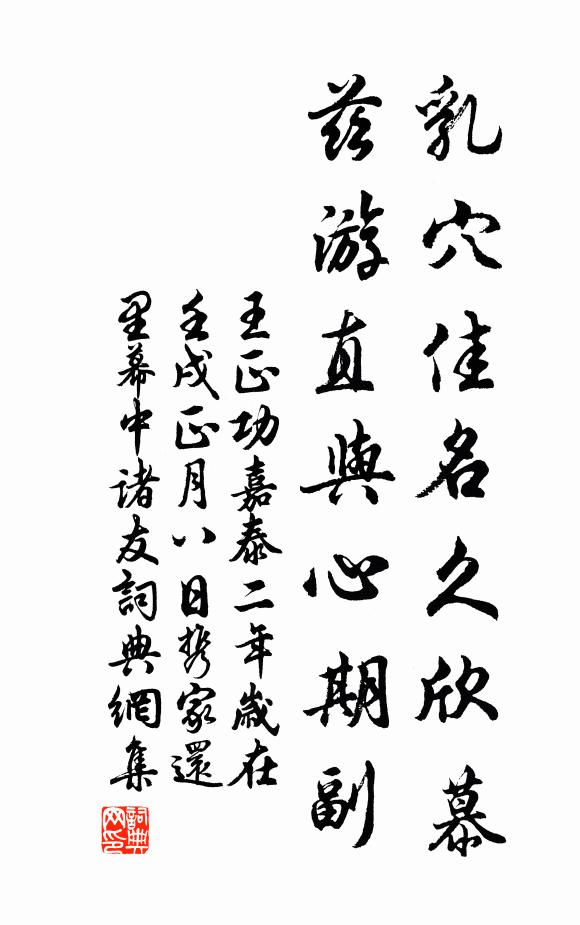 乳穴佳名久欣慕
茲游直與心期副
王正功嘉泰二年歲在
壬戌正月八日携家還
里幕中諸友詞典網集
詞典網印